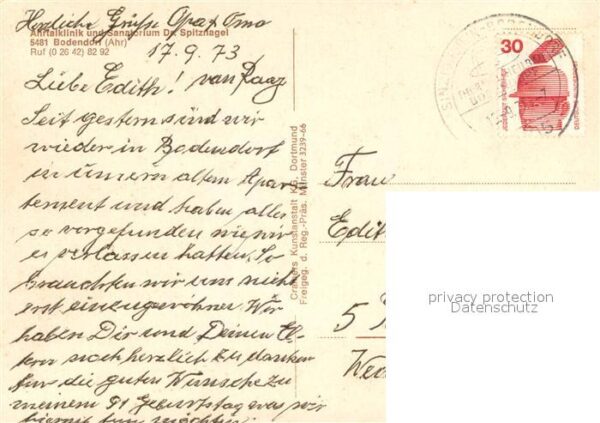 Herzliche Grüße Opa + Oma
Ahrtalklinik und Sanatorium Dr. Spitznagel
5481 Bodendorf (Ahr)
Ruf (0 26 42) 82 92
17.9.73
Liebe Edith!
Seit gestern sind wir
wieder in Bodendorf
in unserm alten Apar
tement und haben alles
so vorgefunden wie wir
es verlassen hatten. So
brauchten wir uns nicht
erst einzugewöhnen. Wir
haben Dir und Deinen El-
tern noch herzlich zu danken
für die guten Wünsche zu
meinem 91 Geburtstag was wir
hiermit tun möchten.
Cramers Kunstanstalt KG, Dortmund
Freigeg. d. Reg.-Präs. Münster 3239-66
30
Frau
Edit
5
privacy protection
Datenschutz